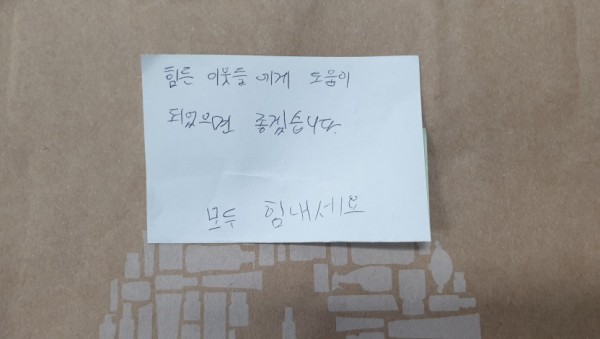 힘든 이웃들에게 도움이
되었으면 좋겠습니다.
모두 힘내세요